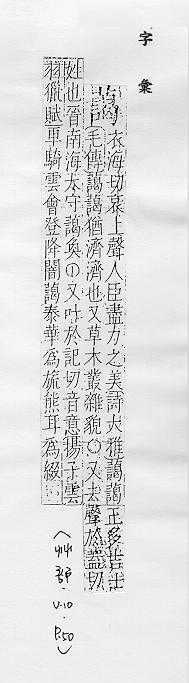 字彙
藹
衣海切哀上聲人臣盡力之美詩大雅藹藹王多吉士
毛傳藹藹猶濟濟也又草木叢雜貌〇又去聲於蓋切
姓也晉南海太守藹奐〇又叶於記切音意揚子雲
羽獵賦車騎雲會登降闇藹泰華為旒熊耳為綴
(艸部·V.10·P.50)